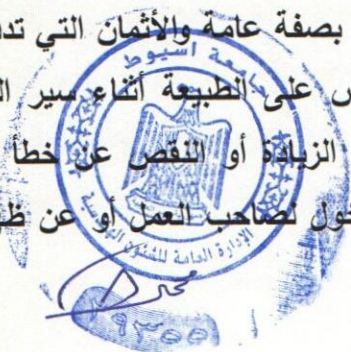 بصفة عامة والأثمان التي تد
س على الطبيعة أثناء سير ال
الزيادة أو النقص عن خطأ
خول لصاحب العمل أو عن ظ
جامعة اسيوط
الإدارة العامة للشئون الهندسية
٩٣٥٥